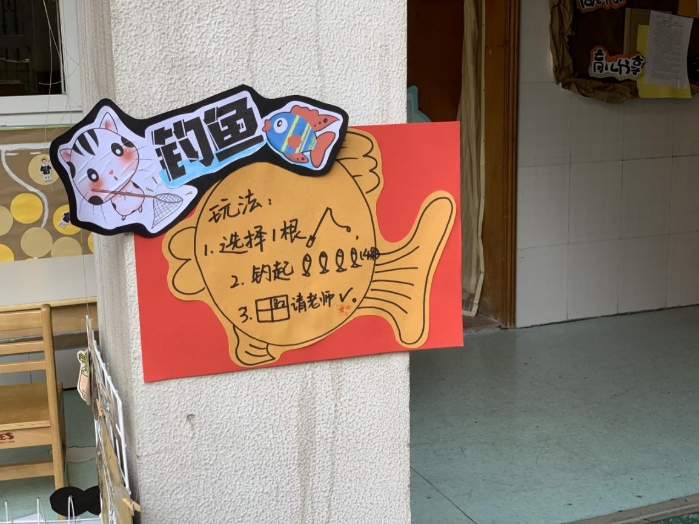 钓鱼
玩法：
1. 选择1根
2. 钓起
3. 请老师✓。
育儿分享